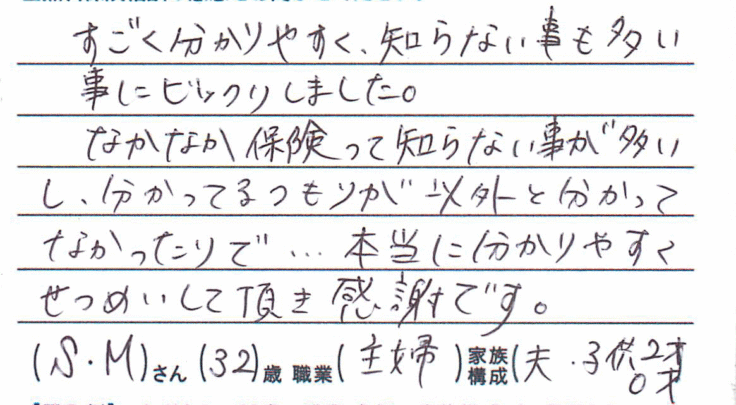 すごく分かりやすく、知らない事も多い
事にビックリしました。
なかなか保険って知らない事が多い
し、分かってるつもりが以外と分かって
なかったりで…本当に分かりやすく
せつめいして頂き感謝です。
(S.M)さん(32)歳 職業(主婦)家族構成(夫・子供2才
0才